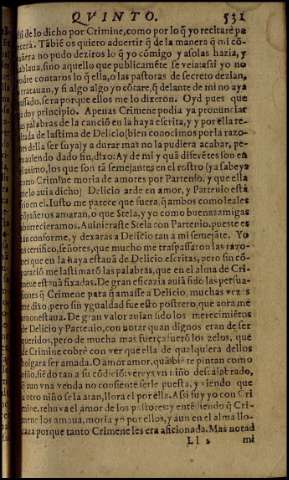 QVINTO. 531
si de lo dicho por Crimine, como por lo q̃ yo recitarè pa
cerà. Tãbiẽ os quiero aduertir q̃ de la manera q̃ mi cõ
añera no pudo deziros lo q̃ yo cõmigo y a solas hazia, y
ablaua, sino aquello que publicamẽte se veia: assi yo no
odre contaros lo q̃ ella, o las pastoras de secreto dezian,
tratauan, y si algo algo yo cõtare, q̃ delante de mi no aya
assado, sera porque ellos me lo dixeron. Oyd pues que
a doy principio. Apenas Crimene podia ya pronunciar
as palabras de la canciõ en la haya escrita, y por ella re
tada de lastima de Delicio (bien conocimos por la razo
della ser suya) y a durar mas no la pudiera acabar,
auiendo dado fin, dixo: Ay de mi y quã diferẽtes son en
animo, los que son tã semejantes en el rostro (ya sabeys
omo Crimine moria de amores por Partenio, y que ella
me lo auia dicho) Delicio arde en amor, y Partenio està
en el. Iusto me parece que fuera, q̃ ambos como leales
cõpañeros amaran, o que Stela, y yo como buenas amigas
mereciéramos. Auinieraste Stela con Partenio, pues te es
as conforme, y dexaras a Delicio tan a mi semejãte. Yo
certifico, señores, que mucho me traspassaron las razo
nes que en la haya estauã de Delicio escritas, pero sin cõ
paració me lastimarõ las palabras, que en el alma de Cri
ene estauã fixadas. De gran eficacia auiã sido las persua
iones q̃ Crimene para q̃ amasse a Delicio, muchas vezes
me dixo, pero sin ygualdad fue esto postrero, que aora me
azoneaua. De gran valor auian sido los merecimiẽtos
de Delicio y Partenio, con notar quan dignos eran de ser
queridos, pero de mucha mas fuerça fuerõ los zelos, que
de Crimine cobrè con ver que ella de qualquiera dellos
holgara ser amada. O amor amor, quã biẽ te pintan como
niño, siẽdo tan a su cõdiciõ:
aun vna venda no consiente serle puesta, y viendo que
otro niño se la atan, llora el por ella. Assi fuy yo con Cri
mine, rehuya el amor de los pastores: y entẽdiendo q̃ Cri
mene los amaua, moria yo por ellos, y aun en el alma llo
raua porque tanto Crimene les era aficionada. Mas notad
Ll 2 mi